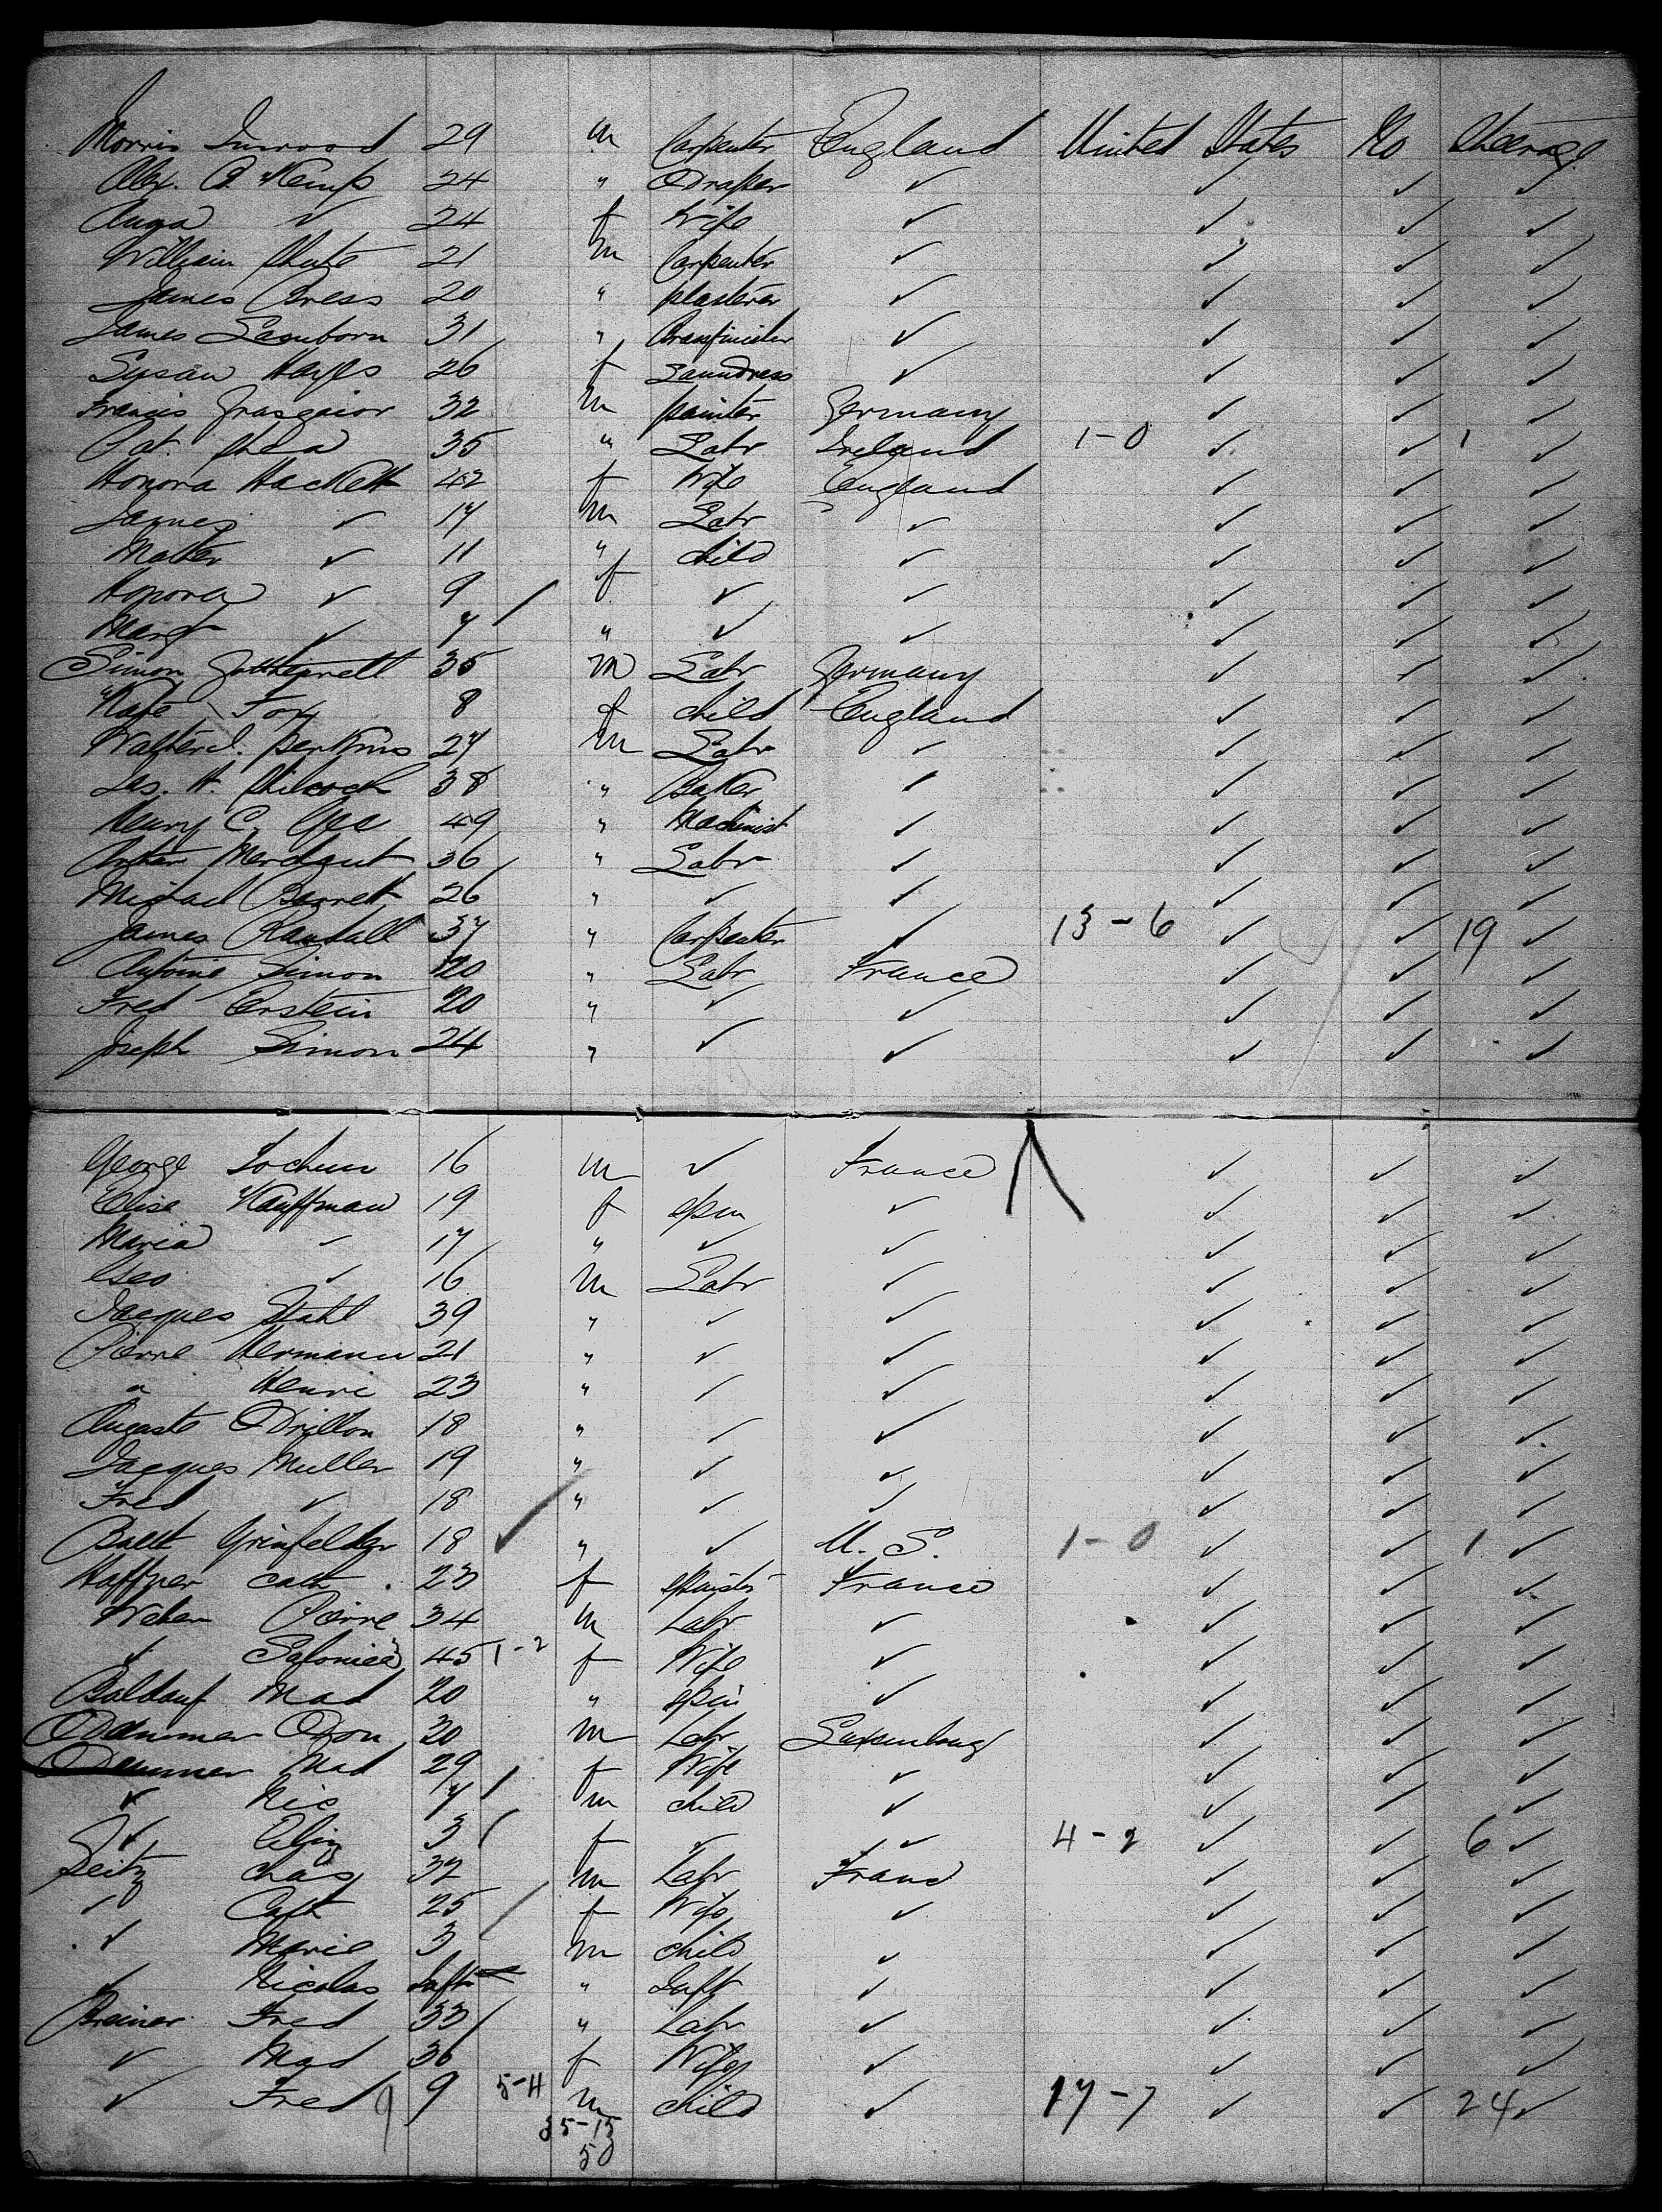 Morris Inwood 29 m Carpenter England United States No Steerage
Alex. B. Kemp 24 " Draper ✓ ✓ ✓ ✓
Anna ✓ 24 f Wife ✓ ✓ ✓ ✓
William Shute 21 m Carpenter ✓ ✓ ✓ ✓
James Cress 20 " plasterer ✓ ✓ ✓ ✓
James Samborn 31 " ✓ ✓ ✓ ✓
Susan Hayes 26 f Laundress ✓ ✓ ✓ ✓
Francis 32 m painter Germany ✓ ✓ ✓
Pat. Shea 35 " Labr Ireland 1-0 ✓ ✓ 1 ✓
Honora Hackett 42 f Wife England ✓ ✓ ✓
James ✓ 17 m Labr ✓ ✓ ✓ ✓
11 " child ✓ ✓ ✓ ✓
Honora ✓ 9 / f ✓ ✓ ✓ ✓ ✓
Margt ✓ 7 " ✓ ✓ ✓ ✓ ✓
Simon 35 m Labr Germany ✓ ✓ ✓
Kate Fox 8 f child England ✓ ✓ ✓
Walter J. Perkins 27 m Labr ✓ ✓ ✓ ✓
Jas. H. Silcock 38 " Baker ✓ ✓ ✓ ✓
Henry C. Gee 49 " Machinist ✓ ✓ ✓ ✓
Arthur Merchant 36 " Labr ✓ ✓ ✓ ✓
Michael Barrett 26 " ✓ ✓ ✓ ✓ ✓
James Randall 37 " Carpenter ✓ 13-6 ✓ ✓ 19 ✓
Antoine Simon 20 " Labr France ✓ ✓ ✓
Fred Erstein 20 " ✓ ✓ ✓ ✓ ✓
Joseph Simon 24 " ✓ ✓ ✓ ✓ ✓
George Jochum 16 m ✓ France ✓ ✓ ✓
Elise Kauffman 19 f spin ✓ ✓ ✓ ✓
Maria ✓ 17 " ✓ ✓ ✓ ✓ ✓
Geo ✓ 16 m Labr ✓ ✓ ✓ ✓
Jacques Stahl 39 " ✓ ✓ ✓ ✓ ✓
Pierre Hermann 21 " ✓ ✓ ✓ ✓ ✓
" Henri 23 " ✓ ✓ ✓ ✓ ✓
Auguste Drillon 18 " ✓ ✓ ✓ ✓ ✓
Jacques Muller 19 " ✓ ✓ ✓ ✓ ✓
Fred ✓ 18 " ✓ ✓ ✓ ✓ ✓
Grinfelder 18 ✓ " ✓ U. S. 1-0 ✓ ✓ 1 ✓
Haffner Cath 23 f France ✓ ✓ ✓
Weber Pierre 34 m Labr ✓ ✓ ✓ ✓
✓ 45 1-2 f Wife ✓ ✓ ✓ ✓
Baldauf Mad 20 " spin ✓ ✓ ✓ ✓
Dammer Dom 30 m Labr Luxemburg ✓ ✓ ✓
Dammer Mad 29 f Wife ✓ ✓ ✓ ✓
✓ Nic 7 / m child ✓ ✓ ✓ ✓
✓ Eliz 3 / f ✓ ✓ 4-2 ✓ ✓ 6 ✓
Seitz Chas 32 m Labr Franc ✓ ✓ ✓
✓ Cath 25 f Wife ✓ ✓ ✓ ✓
✓ Marie 3 / m child ✓ ✓ ✓ ✓
✓ Nicolas Inft " Inft ✓ ✓ ✓ ✓
Breiner Fred 33 / " Labr ✓ ✓ ✓ ✓
✓ Mad 36 f Wife ✓ ✓ ✓ ✓
✓ Fred 9 5-4 m child ✓ 17-7 ✓ ✓ 24 ✓
35-15
50